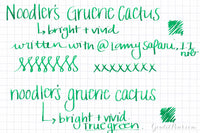 Noodler's Gruene Cactus
↳ bright + vivid
written with @ lamy safari, 1.1 nib
noodler's gruene cactus
↳ bright + vivid
true green